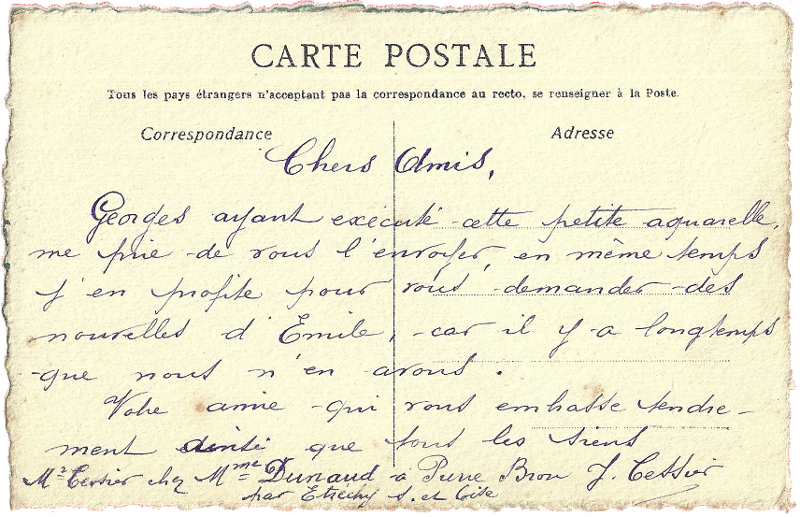 CARTE POSTALE
Tous les pays étrangers n'acceptant pas la correspondance au recto, se renseigner à la Poste.
Correspondance Adresse
Chers Amis,
Georges ayant exécuté cette petite aquarelle,
me prie de vous l'envoyer, en même temps
j'en profite pour vous demander des
nouvelles d'Emile, car il y a longtemps
que nous n'en avons.
Votre amie qui vous embrasse tendre-
ment ainsi que tous les siens
J. Tessier
Mr Tessier chez Mme Durand à Pierre Brou
par Etréchy S. et Oise